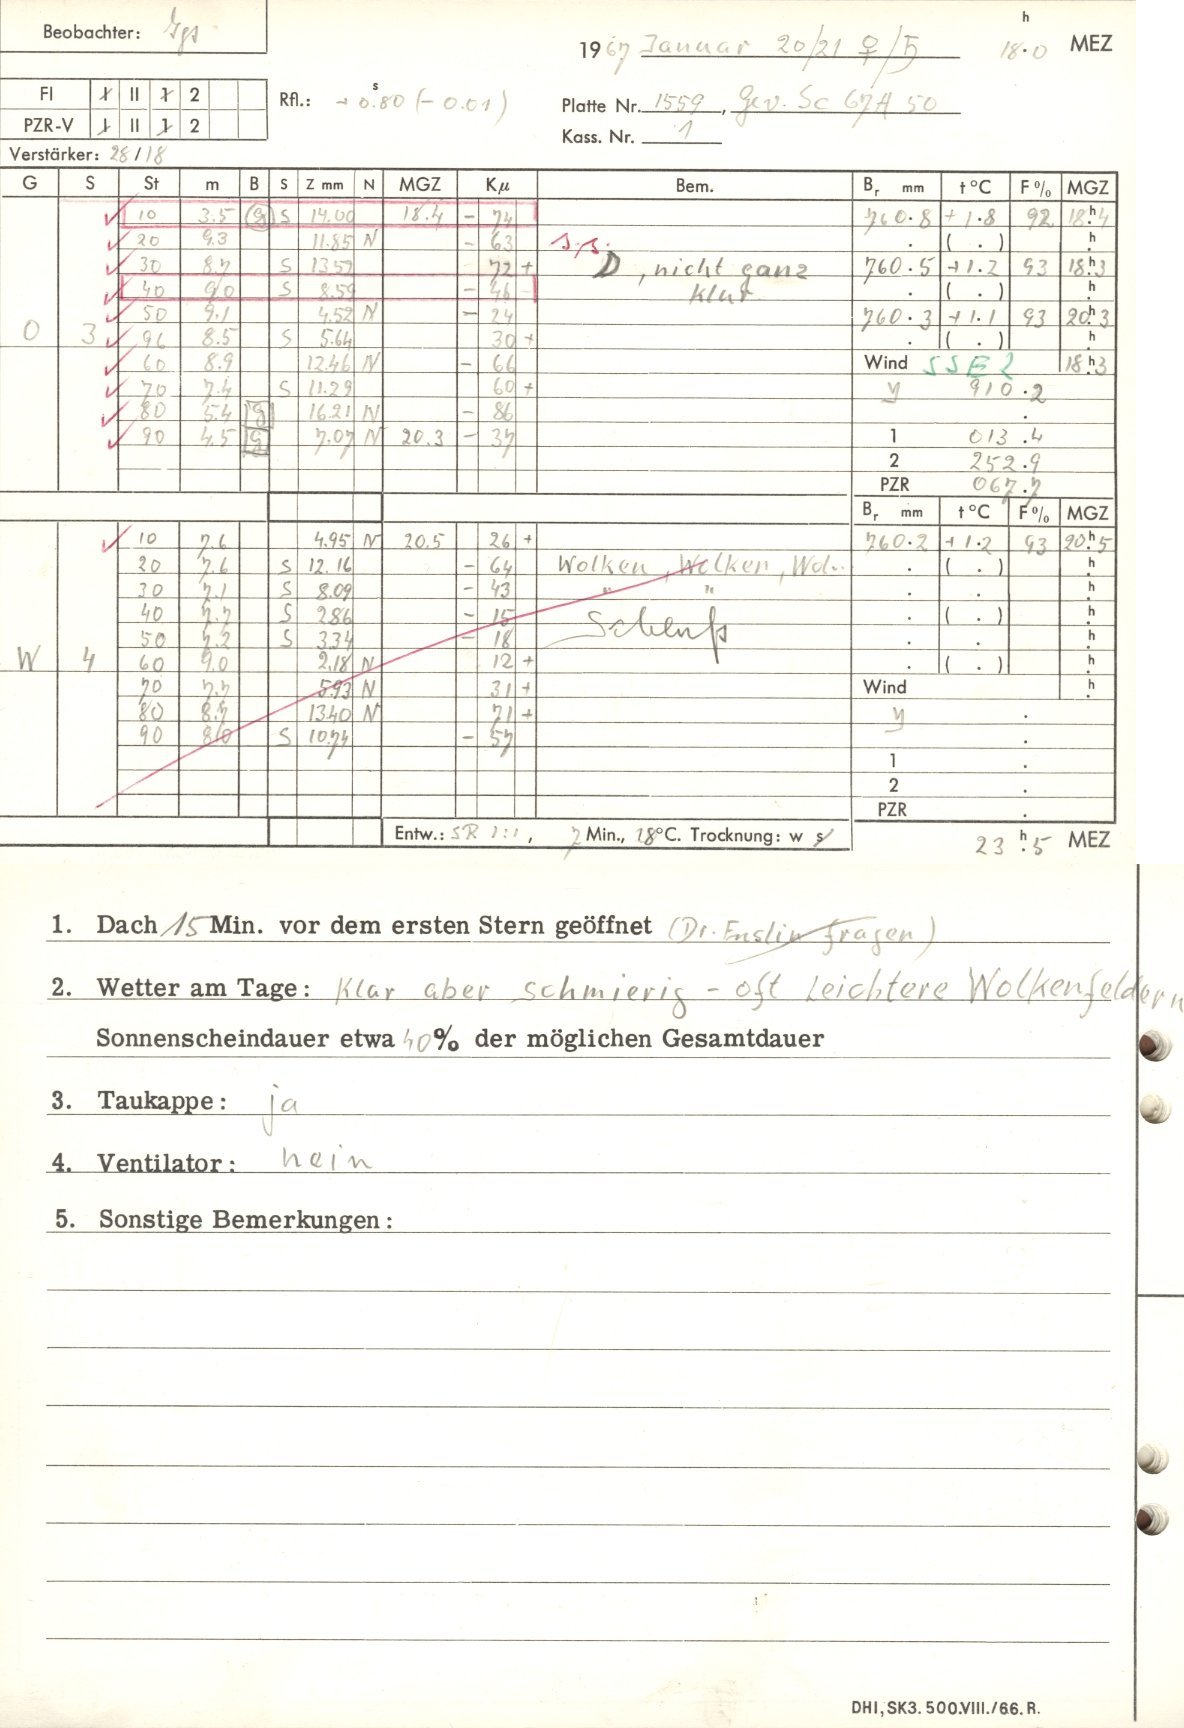 Beobachter: Igs
h
1967 Januar 20/21 ♀/♄ 18.0 MEZ
FI 1 II 1 2
Rfl.: + 0.80 s (- 0.01)
Platte Nr. 1559, Gev. Sc 67A 50
PZR-V 1 II 1 2
Kass. Nr. 1
Verstärker: 28/18
G S St m B S Z mm N MGZ Kµ Bem. Br mm t °C F % MGZ
10 3.5 g S 14.00 18.4 - 74 760.8 +1.8 92 18h4
20 9.3 11.85 N - 63 s.s. . ( . ) h
30 8.7 S 13.59 72 + D, nicht ganz 760.5 +1.2 93 18h3
40 9.0 S 8.59 - 46 klar . ( . ) h
50 9.1 4.52 N - 24 760.3 +1.1 93 20h3
O 3 96 8.5 S 5.64 30 + . ( . ) h
60 8.9 12.46 N - 66 Wind SSE 2 18h3
70 7.4 S 11.29 60 + y 910.2
80 5.4 g 16.21 N - 86 .
90 4.5 g 7.07 N 20.3 - 37 1 013.4
2 252.9
PZR 067.7
Br mm t °C F % MGZ
10 7.6 4.95 N 20.5 26 + 760.2 +1.2 93 20h5
20 7.6 S 12.16 - 64 Wolken, Wolken, Wol.. . ( . ) h
30 7.1 S 8.09 - 43 " " . . h
40 7.7 S 2.86 - 15 Schluß . ( . ) h
50 7.2 S 3.34 - 18 . . h
W 4 60 9.0 2.18 N 12 + . ( . ) h
70 7.7 5.93 N 31 + Wind h
80 8.7 13.40 N 71 + y .
90 8.0 S 10.74 - 57 .
1 .
2 .
PZR .
Entw.: SR 1:1, 7 Min., 18°C. Trocknung: w s
23 h.5 MEZ
1. Dach 15 Min. vor dem ersten Stern geöffnet (Dr. Enslin fragen)
2. Wetter am Tage: Klar aber schmierig - oft Leichtere Wolkenfeldern
Sonnenscheindauer etwa 40% der möglichen Gesamtdauer
3. Taukappe: ja
4. Ventilator: nein
5. Sonstige Bemerkungen:
DHI, SK3. 500.VIII./66. R.